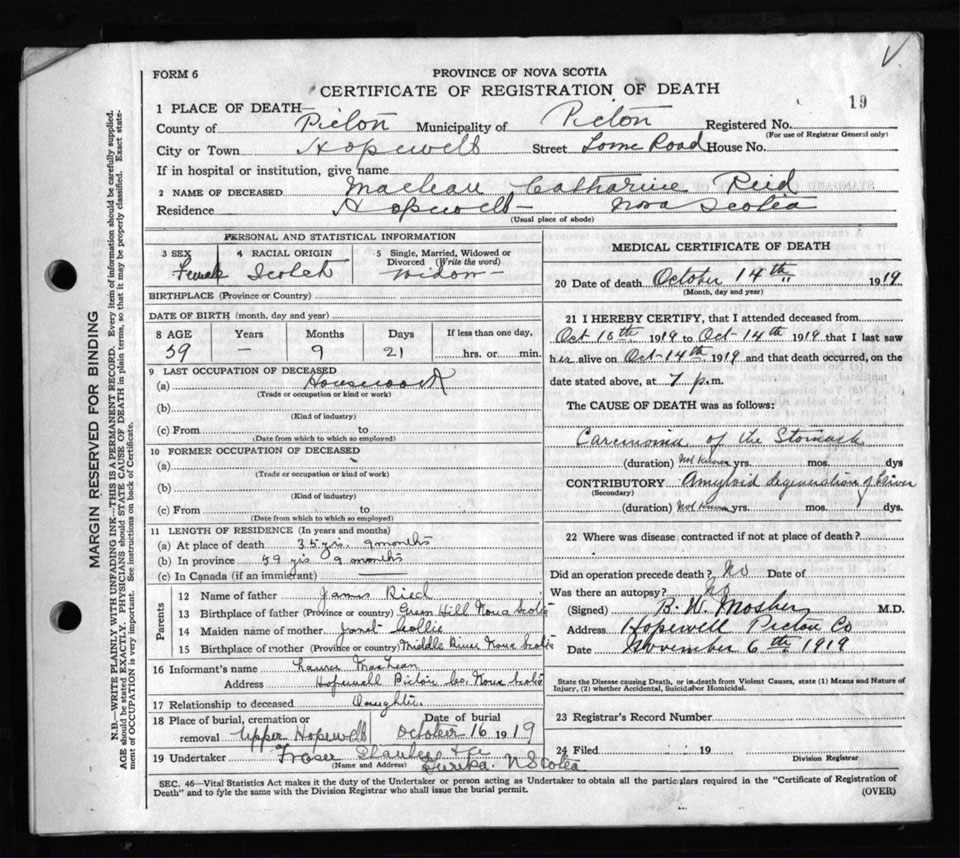 V
FORM 6
PROVINCE OF NOVA SCOTIA
CERTIFICATE OF REGISTRATION OF DEATH
19
1 PLACE OF DEATH—
County of Pictou Municipality of Pictou Registered No.
(For use of Registrar General only)
City or Town Hopewell Street Lorne Road House No.
If in hospital or institution, give name
2 NAME OF DECEASED Maclean Catharine Reid
Residence Hopewell — Nova Scotia
(Usual place of abode)
PERSONAL AND STATISTICAL INFORMATION
3 SEX 4 RACIAL ORIGIN 5 Single, Married, Widowed or Divorced (Write the word)
Female Scotch Widow —
BIRTHPLACE (Province or Country)
DATE OF BIRTH (month, day and year)
8 AGE Years Months Days If less than one day,
59 — 9 21 hrs. or min.
9 LAST OCCUPATION OF DECEASED
(a) Housework
(Trade or occupation or kind or work)
(b)
(Kind of industry)
(c) From to
(Date from which to which so employed)
10 FORMER OCCUPATION OF DECEASED
(a)
(Trade or occupation or kind of work)
(b)
(Kind of industry)
(c) From to
(Date from which to which so employed)
11 LENGTH OF RESIDENCE (In years and months)
(a) At place of death 35 yrs. 9 months
(b) In province 59 yrs 9 months
(c) In Canada (if an immigrant)
Parents
12 Name of father James Ried
13 Birthplace of father (Province or country) Green Hill Nova Scotia
14 Maiden name of mother Janet Collie
15 Birthplace of mother (Province or country) Middle River Nova Scotia
16 Informant's name MacLean
Address Hopewell Pictou Co. Nova Scotia
17 Relationship to deceased Daughter
18 Place of burial, cremation or removal Date of burial
Upper Hopewell October 16 1919
19 Undertaker Fraser
(Name and Address) Eureka. N Scotia
MEDICAL CERTIFICATE OF DEATH
20 Date of death October 14th 1919
(Month, day and year)
21 I HEREBY CERTIFY, that I attended deceased from
Oct 10th 1919 to Oct-14th 1919 that I last saw
her alive on Oct-14th 1919 and that death occurred, on the
date stated above, at 7 p.m.
The CAUSE OF DEATH was as follows:
Carcinoma of the Stomach
(duration) Not Known yrs. mos. dys
CONTRIBUTORY Amyloid degeneration of Liver
(Secondary)
(duration) Not Known yrs. mos. dys.
22 Where was disease contracted if not at place of death?
Did an operation precede death? No Date of
Was there an autopsy? No
(Signed) B. W. Mosher M.D.
Address Hopewell Pictou Co
Date November 6th 1919
State the Disease causing Death, or in death from Violent Causes, state (1) Means and Nature of
Injury, (2) whether Accidental, Suicidal or Homicidal.
23 Registrar's Record Number
24 Filed 19
Division Registrar
SEC. 46—Vital Statistics Act makes it the duty of the Undertaker or person acting as Undertaker to obtain all the particulars required in the "Certificate of Registration of
Death" and to fyle the same with the Division Registrar who shall issue the burial permit.
(OVER)
MARGIN RESERVED FOR BINDING
N.B.—WRITE PLAINLY WITH UNFADING INK—THIS IS A PERMANENT RECORD. Every item of information should be carefully supplied.
AGE should be stated EXACTLY. PHYSICIANS should STATE CAUSE OF DEATH in plain terms, so that it may be properly classified. Exact state-
ment of OCCUPATION is very important. See instructions on back of Certificate.